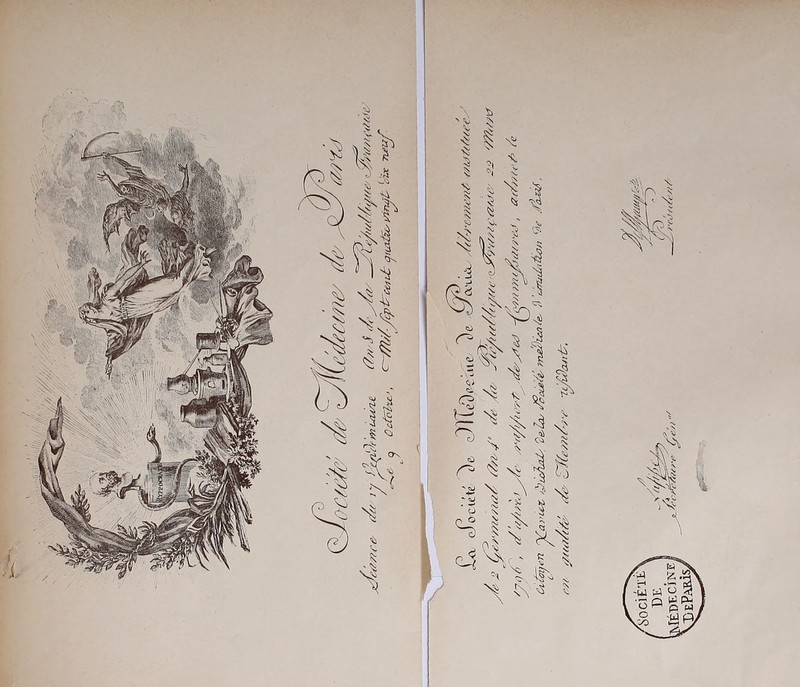 HIPPOCRATE
Société de Médecine de Paris
Séance du 17 Vendémiaire An 8 de la République Française
Le 9 Octobre, Mil Sept cent quatre vingt dix neuf
La Société de Médecine de Paris librement instituée
le 2 Germinal An 4 de la République Française 22 Mars
1796, d'après le rapport de ses Commissaires, admet le
Citoyen Xavier Bichat de la Société médicale d'émulation de Paris,
en qualité de Membre résidant.
Président
Secrétaire Génal
SOCIÉTÉ
DE
MÉDECINE
DE PARIS